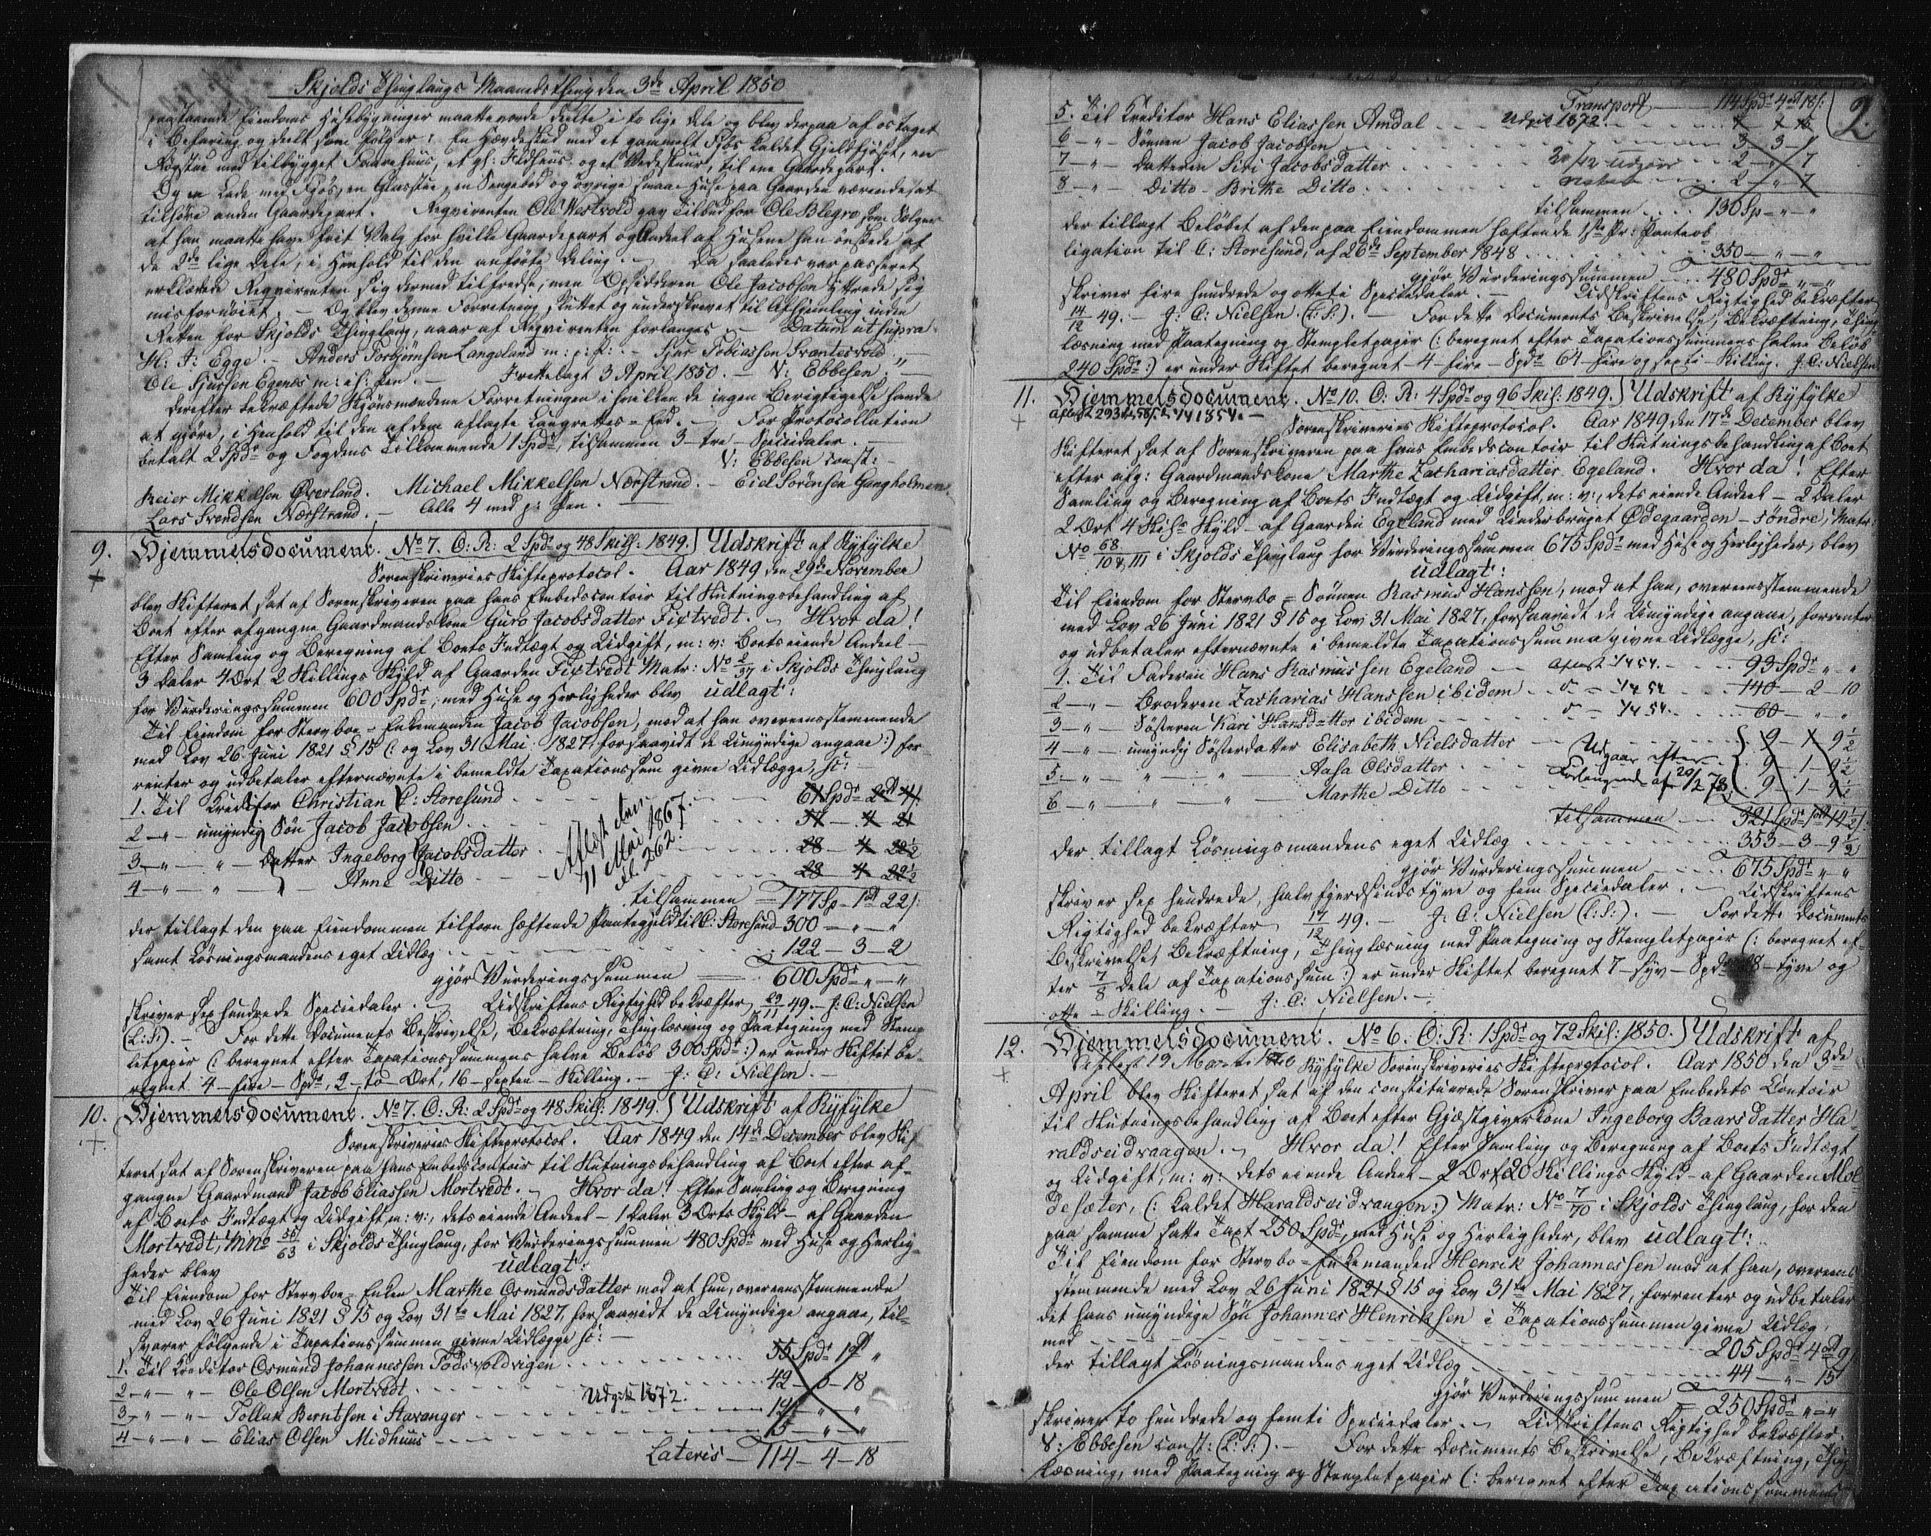 Skjolds Thinglaugs Maanedsthing den 3de April 1850
paastaaende Eiendoms Husebygninger maatte vorde deelte i to lige dele og blev derpaa af os taget
i Besfaring og deelt som følger: En Hædestad med et gammelt Fjøs kaldet Gjeldfjøst, en
Røgstue med tilbygget Faarehuus, et gl: Ildhuus og et Vedskuur, til ene Gaardepart.
Og en Lade med Fjøs, en Glasstue, en Sengebod og øvrige smaae Huse paa Gaarden værende at
tilhøre anden Gaardepart. Reqvirenten Ole Westvold gav Tilbud for Ole Blegro som Sælger
at han maatte have frit Valg for hvilke Gaardepart og Andeel af Husene han ønskede af
de 2de lige Dele, i Henhold til den anførte deling. – Da saaledes var passeret
erklærede Reqvirenten sig dermed tilfreds, men Opsidderen Ole Jacobsen yttrede sig
misfornøiet. – Og blev denne Forretning sluttet og underskrevet til Afhjemling inden
Retten for Skjolds Thinglaug, naar af Reqvirenten forlanges. – Datum ut supra.
H: J: Egge. – Anders Torbjørnsen Langeland m: p: P: – Sjur Tobiassen Svantesvold.
Ole Sjursen Egenes m: i h: Pen. – Fremlagt 3 April 1850. – V: Ebbesen.
Derefter bekræftede Skjønsmændene Forretningen i hvilken de ingen Berigtigelse havde
at gjøre, i Henhold til den af dem aflagte Laugrettes-Eed. – For Protocollation
betalt 2 Spdr og Fogdens Tilkommende 1 Spdr, tilsammen 3 – tre – Speciedaler. –
V: Ebbesen const: –
Reier Mikkelsen Øverland. Michael Mikkelsen Nærstrand. – Eiel Sørensen Gangholmen
Lars Svendsen Nærstrand. – Alle 4 med p: Pen. –
9. Hjemmelsdocument. No 7. O: R: 2 Spdr og 48 Skill: 1849. Udskrift af Ryfylke
+ Sorenskriveries Skifteprotocol. Aar 1849 den 29de November
blev Skifteret sat af Sorenskriveren paa hans Embedscontoir til Slutningsbehandling af
Boet efter afgangne Gaardmandskone Guro Jacobsdatter Fixtvedt. – Hvor da!
Efter Samling og Beregning af Boets Indtægt og Udgift, m: v: Boets eiende Andeel –
3 Daler 4 Ort 2 Skillings Skyld af Gaarden Fixtvedt Matr: No 2/17 i Skjolds Thinglaug
for Vurderingssummen 600 Spdr, med Huse og Herligheder blev udlagt:
Til Eiendom for Stervboe – Enkemanden Jacob Jacobsen, mod at han overeensstemmende
med Lov 26 Juni 1821 § 15 (: og Lov 31 Mai 1827, forsaavidt de Umyndige angaae :) for-
renter og udbetaler efternævnte i bemeldte Taxationssum givne Udlægge, sc: –
1. Til Creditor Christian C: Storesund 61 Spdr 2 Ort 4 s.
2 – " – umyndig Søn Jacob Jacobsen 57 – 4 21
3 – " – " – Datter Ingeborg Jacobsdatter 28 – 4 22½
4 – " – " – " Anne Ditto 28 4 22½
Aflæst den
11 Mai 1867.
fol. 262.
tilsammen = 177 Sp – 1 Ort 22 s.
der tillagt den paa Eiendommen tilforn hæftende Pantegjeld til C: Storesund 300 – " – "
samt Løsningsmandens eget Udlæg 122 – 3 – 2
gjør Vurderingssummen 600 Spdr " – "
skriver sex hundrede Speciedaler. – Udskriftens Rigtighed bekræfter 29/11 49. – J: C: Nielsen
(L: S:). – For dette Documents Beskrivelse, Bekræftning, Thinglæsning og Paategning med Stemp-
letpapir (: beregnet efter Taxationssummens halve Beløb 300 Spdr :) er under Skiftet be-
regnet 4 – fire – Spdr, 2 – to – Ort, 16 – sexten – Skilling. – J: C: Nielsen. –
10. Hjemmelsdocument. No 7. O: R: 2 Spdr og 48 Skill: 1849. Udskrift af Ryfylke
+ Sorenskriveries Skifteprotocol. Aar 1849 den 14de December blev Skif-
teret sat af Sorenskriveren paa hans Embedscontoir til Slutningsbehandling af Boet efter af-
gangne Gaardmand Jacob Eliassen Mortvedt. – Hvor da! Efter Samling og Beregning
af Boets Indtægt og Udgift m: v:, dets eiende Andeel – 1 Daler 3 Orts Skyld – af Gaarden
Mortvedt, M No 56/63 i Skjolds Thinglaug, for Vurderingssummen 480 Spdr med Huse og Herlig-
heder blev udlagt:
Til Eiendom for Stervboe – Enken Marthe Osmundsdatter mod at hun, overeensstemmende
med Lov 26 Juni 1821 § 15 og Lov 31te Mai 1827, forsaavidt de Umyndige angaae, til-
svarer følgende i Taxationssummen givne Udlægge sc: –
1. Til Creditor Osmund Johannessen Todsvoldvigen 55 Spdr 1 Ort "
2 – " – " – Ole Olsen Mortvedt 42 – 3 – 18
3 – " – " – Tollak Berntsen i Stavanger Udgik 1872. 12 – " – "
4 – " – " – Elias Olsen Midhuus 5 – " – "
Lateris – 114 – 4 – 18
2.
Transport 114 Spdr 4 Ort 18 s.
5. Til Creditor Hans Eliassen Amdal Udgik 1872.
6 – " – Sønnen Jacob Jacobsen 3 3 1
7 – " – Datteren Siri Jacobsdatter 2 – " 7
8 – " – Ditto – Brithe Ditto 2 – " 7
tilsammen 130 Sp – " – "
der tillagt Beløbet af den paa Eiendommen hæftende 1ste Pr: Panteob-
ligation til C: Storesund, af 26de September 1848 350 – " – "
gjør Vurderingssummen 480 Spdr " – "
skriver fire hundrede og otteti Speciedaler. – Udskriftens Rigtighed bekræfter
14/12 49. – J: C: Nielsen. (L: S:). – For dette Documents Beskrivelse, Bekræftning, Thing-
læsning med Paategning og Stempletpapir (: beregnet efter Taxationssummens halve Beløb
240 Spdr :) er under Skiftet beregnet 4 – fire – Spdr 64 – fire og sexti – Skilling. J: C: Nielsen
11. Hjemmelsdocument. No 10. O: R: 4 Spdr og 96 Skil: 1849. Udskrift af Ryfylke
+ Sorenskriveries Skifteprotocol. Aar 1849 den 17de December blev
Skifteret sat af Sorenskriveren paa hans Embedscontoir til Slutningsbehandling af Boet
efter afg: Gaardmandskone Marthe Zachariasdatter Egeland. Hvor da! Efter
Samling og Beregning af Boets Indtægt og Udgift, m: v:, dets eiende Andeel – 2 Daler
2 Ort 4 Skill: Skyld – af Gaarden Egeland med Underbruget Ødegaarden – søndre, Matr:
No 68/104, 111 i Skjolds Thinglaug for Vurderingssummen 675 Spdr med Huse og Herligheder, blev
udlagt:
Til Eiendom for Stervbo – Sønnen Rasmus Hanssen, mod at han, overeensstemmende
med Lov 26 Juni 1821 § 15 og Lov 31 Mai 1827, forsaavidt de Umyndige angaae, forrenter
og udbetaler efternævnte i bemeldte Taxationssumma givne Udlægge, sc:
1. Til Faderen Hans Rasmussen Egeland aflæst 1/4 54. 93 Spdr " "
2 – " – Broderen Zacharias Hanssen ibidem do – 1/4 54. 140 – 2 – 10
3 – " – Søsteren Kari Hansd=tter ibidem do – 1/4 54. 60 – " "
4 – " – umyndig Søsterdatter Elisabeth Nielsdatter 9 – 1 9½
5 – " – " – " Aasa Olsdatter 9 – 1 – 9½
6 – " – " – " Marthe Ditto 9 1 – 9½
Udgaar efter
Forlangende af 20/12 73
tilsammen 321 Spdr 1 Ort 14½ s.
der tillagt Løsningsmandens eget Udlæg 353 – 3 – 9½
gjør Vurderingssummen 675 Spdr " "
skriver sex hundrede, halvfjerdsindstyve og fem Speciedaler. – Udskriftens
Rigtighed bekræfter 17/12 49. – J: C: Nielsen (L: S:). – For dette Documents
Beskrivelse, Bekræftning, Thinglæsning med Paategning og Stempletpapir (: beregnet ef-
ter 7/8 Dele af Taxationssum :) er under Skiftet beregnet 7 – syv – Spdr 28 – tyve og
otte – Skilling. – J: C: Nielsen. –
12. Hjemmelsdocument. No 6. O: R: 1 Spdr og 72 Skil: 1850. Udskrift af
+ Ryfylke Sorenskriveries Skifteprotocol. Aar 1850 den 3de
April blev Skifteret sat af den constituerede Sorenskriver paa Embedets Contoir
til Slutningsbehandling af Boet efter Gjæstgiverkone Ingeborg Baarsdatter Ha-
raldseidvaagen. – Hvor da! Efter Samling og Beregning af Boets Indtægt
og Udgift, m: v: dets eiende Andeel – 2 Ort 20 Skillings Skyld – af Gaarden Mol-
desæter, (: kaldet Haraldseidvaagen :) Matr: No 7/70 i Skjolds Thinglaug, for den
paa samme satte Taxt 250 Spdr, med Huse og Herligheder, blev udlagt:
Til Eiendom for Stervbo – Enkemanden Henrik Johannessen mod at han, overeens-
stemmende med Lov 26 Juni 1821 § 15 og Lov 31te Mai 1827, forrenter og udbetaler
det hans umyndige Søn Johannes Henriksen i Taxationssummen givne Udlæg
med 205 Spdr 4 Ort 9 s.
der tillagt Løsningsmandens eget Udlæg 44 – " – 15
gjør Vurderingssummen = 250 Spdr " – "
skriver to hundrede og femti Speciedaler. – Udskriftens Rigtighed bekræfter.
V: Ebbesen const: (L: S:). – For dette Documents Beskrivelse, Bekræftning, Thing-
læsning, med Paategning og Stempletpapir (: beregnet efter Taxationssummens